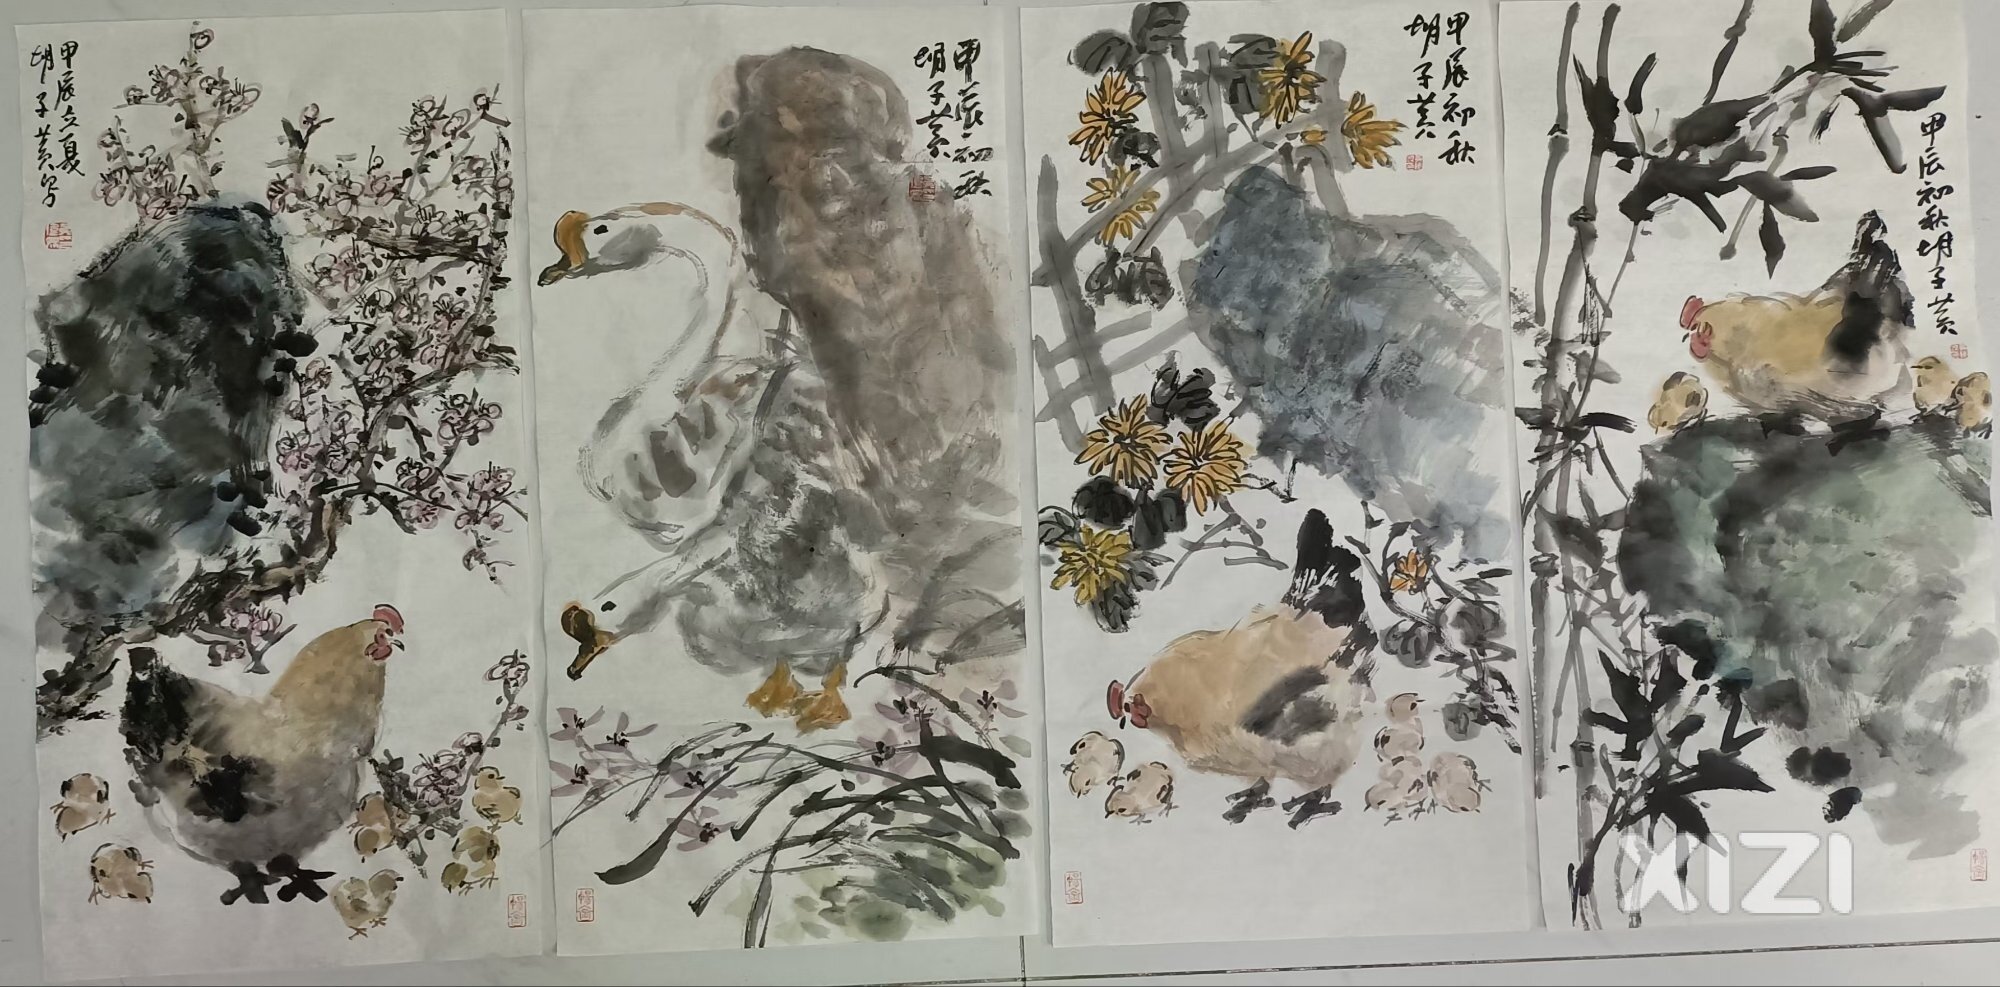 甲辰立夏
胡子黄写
甲辰初秋
胡子黄
甲辰初秋
胡子黄
甲辰初秋胡子黄
XIZI